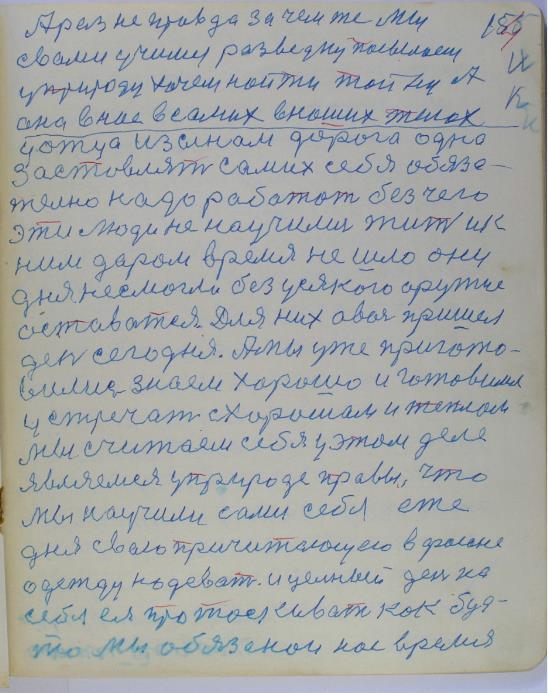 А раз не правда зачем же мы 155
свами учими разведку посылаем
уприроду хочем найти тойну А
она внас всамих внаших телах
уотца изсынам дорога одна
Заставлят самих себя обяза-
телно надо работат без чего
эти люди не научимися жит ик
ним даром время не шло ону
дня несмогли без усякого оружие
оставатся. Для них авот пришел
ден сегодня. Амы уже пригото-
вились, знаем хорошо и готовимся
устречат схорошам и теплом
мы считаем себя уэтом деле
являемся уприроде правы, что
мы научили сами себя еже
дня сваю причитающую вформе
одежду надеват. и целный ден на
себя ея протаскиват как буд-
то мы обязаной нас время